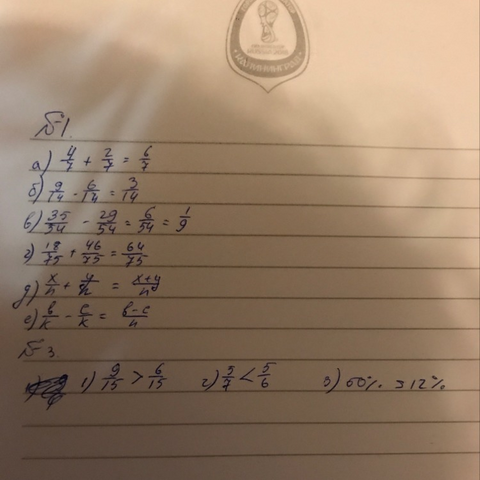 №1.
а) 4/7 + 2/7 = 6/7
б) 9/14 - 6/14 = 3/14
в) 35/54 - 29/54 = 6/54 = 1/9
г) 18/75 + 46/75 = 64/75
д) x/n + y/n = x+y/n
е) в/к - с/к = в-с/н
№3
1) 9/15 > 6/15 2) 5/7 < 5/6